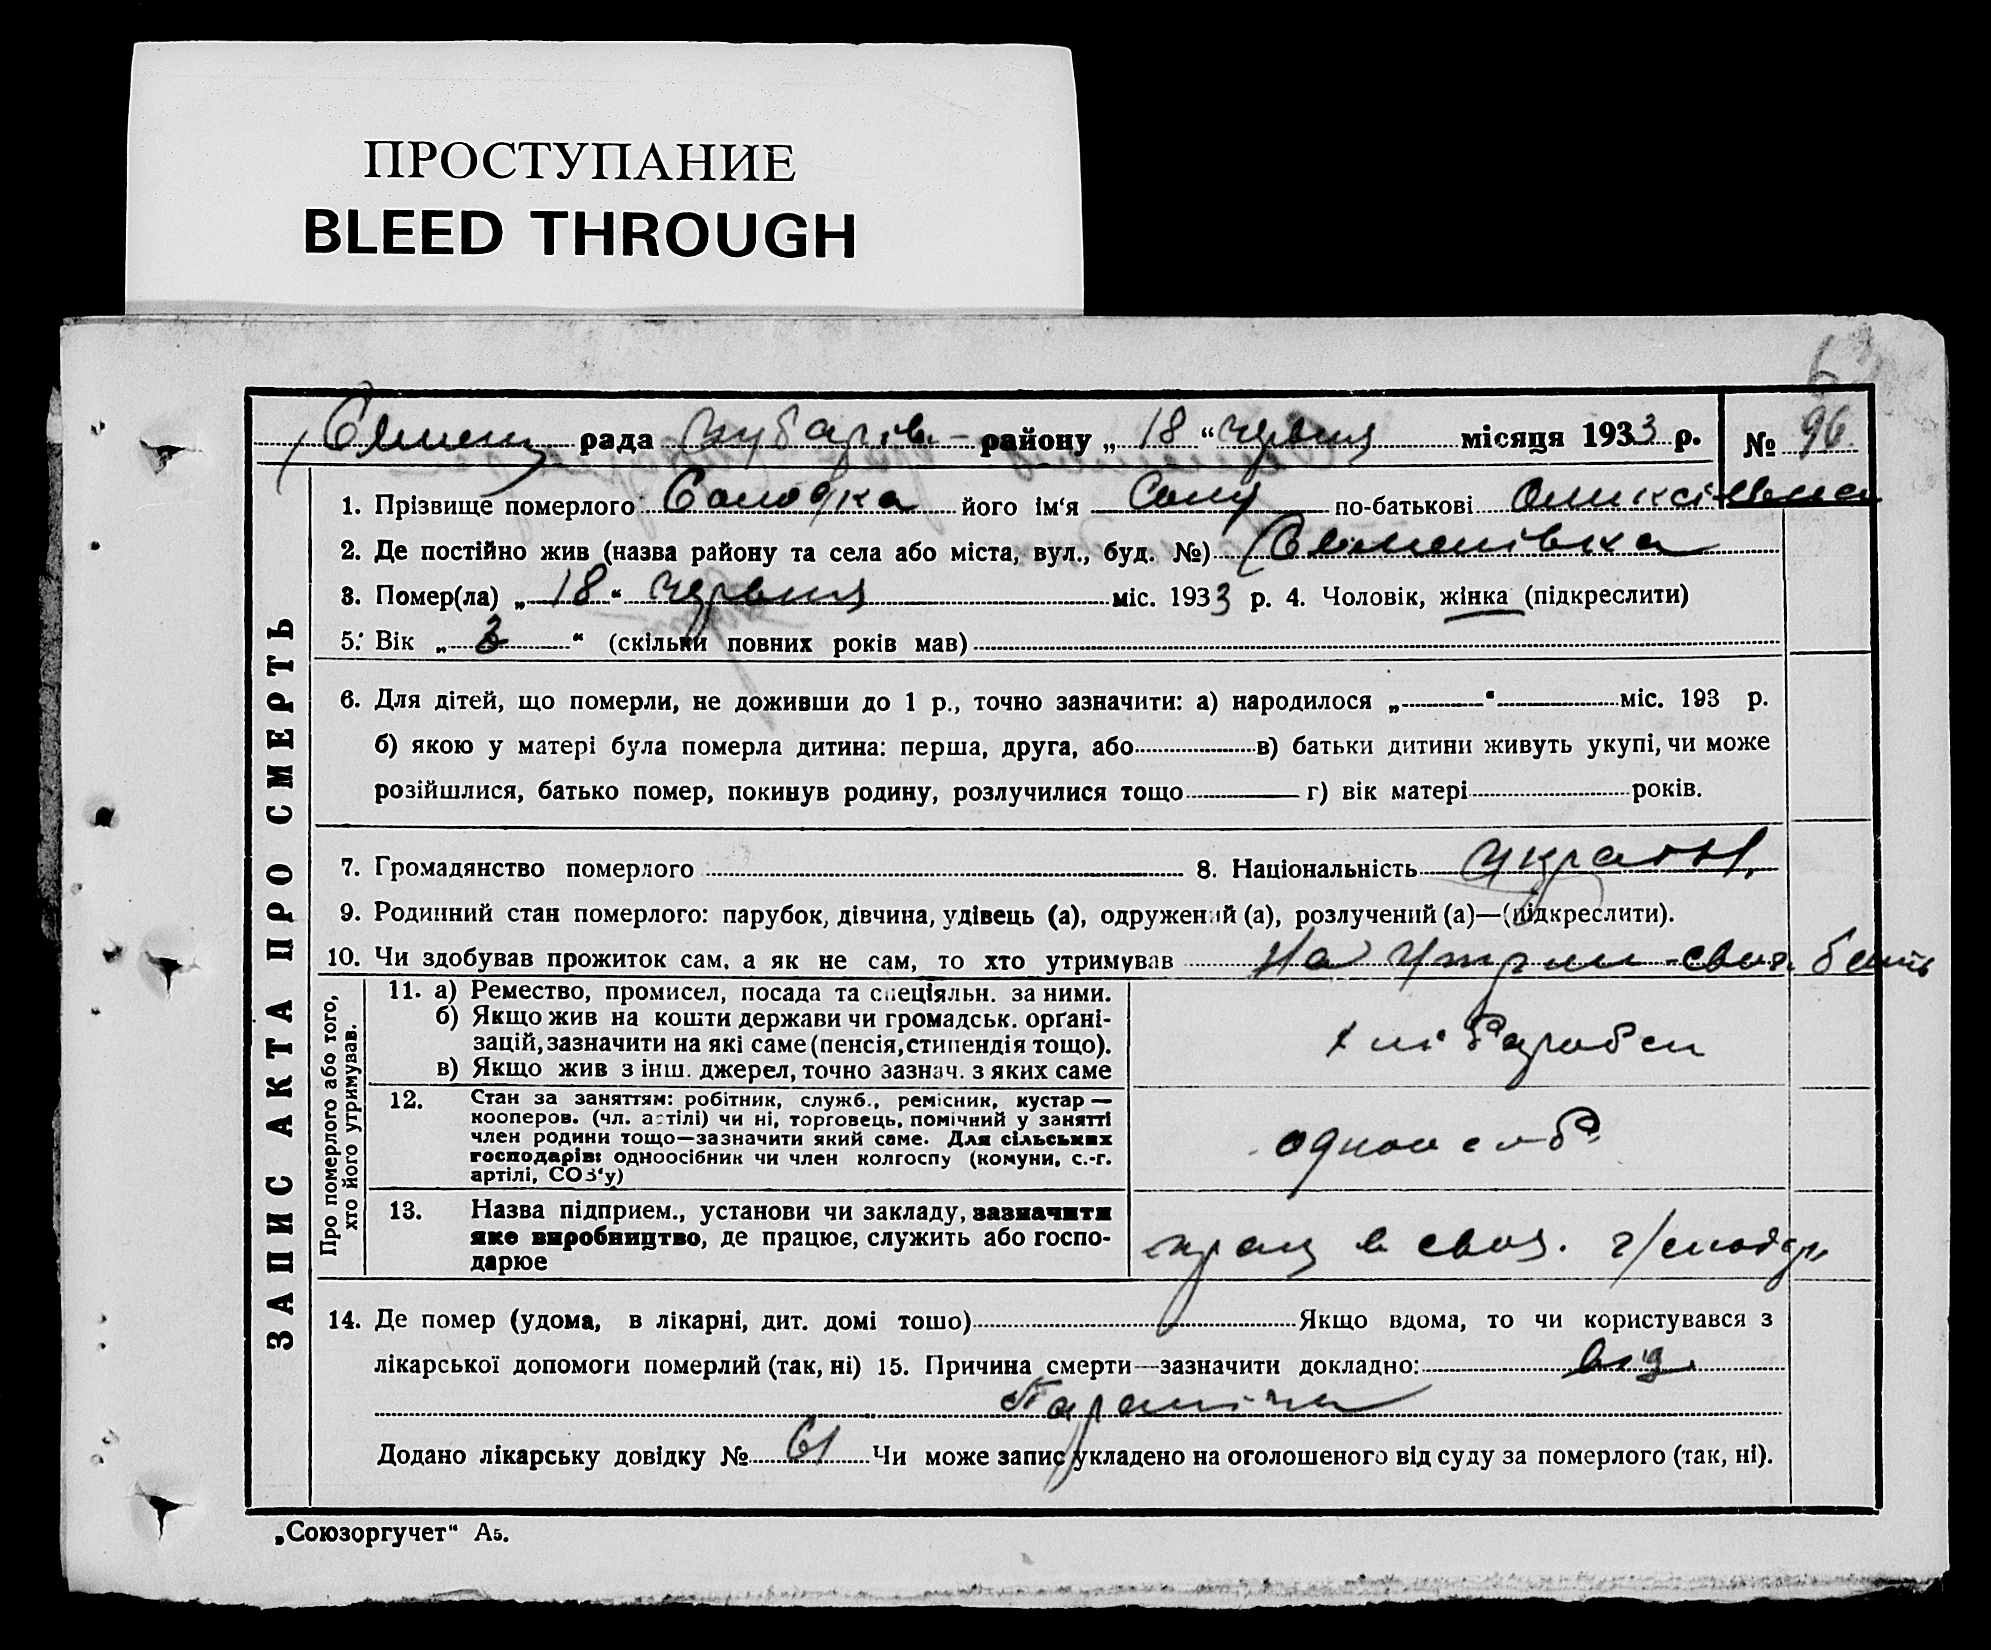 ПРОСТУПАНИЕ
BLEED THROUGH
рада району „ 18 “ червня місяця 1933 р. № 96
ЗАПИС АКТА ПРО СМЕРТЬ
1. Прізвище померлого Солодка його ім‘я по-батькові
2. Де постійно жив (назва району та села або міста, вул., буд. №) Семенівка
3. Помер(ла) „ 18 “ червня міс. 1933 р. 4. Чоловік, жінка (підкреслити)
5. Вік „ 3 “ (скільки повних років мав)
6. Для дітей, що померли, не доживши до 1 р., точно зазначити: а) народилося „ “ міс. 193 р.
б) якою у матері була померла дитина: перша, друга, або в) батьки дитини живуть укупі, чи може
розійшлися, батько помер, покинув родину, розлучилися тощо г) вік матері років.
7. Громадянство померлого 8. Національність україн.
9. Родинний стан померлого: парубок, дівчина, удівець (а), одружений (а), розлучений (а)—(підкреслити).
10. Чи здобував прожиток сам, а як не сам, то хто утримував на утрим своч. батьк
Про померлого або того, хто його утримував.
11. а) Ремество, промисел, посада та спеціяльн. за ними.
б) Якщо жив на кошти держави чи громадськ. орґані-
зацій, зазначити на які саме (пенсія, стипендія тощо).
в) Якщо жив з інш. джерел, точно зазнач. з яких саме
хлібороби
12. Стан за заняттям: робітник, служб., ремісник, кустар —
кооперов. (чл. астілі) чи ні, торговець, помічний у занятті
член родини тощо—зазначити який саме. Для сільських
господарів: одноосібник чи член колгоспу (комуни, с.-г.
артілі, СОЗ‘у)
одноосіб.
13. Назва підприєм., установи чи закладу, зазначити
яке виробництво, де працює, служить або госпо-
дарює
прац в своц. г/сподар
14. Де помер (удома, в лікарні, дит. домі тошо) Якщо вдома, то чи користувався з
лікарської допомоги померлий (так, ні) 15. Причина смерти—зазначити докладно: від
Додано лікарську довідку № 61 Чи може запис укладено на оголошеного від суду за померлого (так, ні).
„Союзоргучет“ А5.